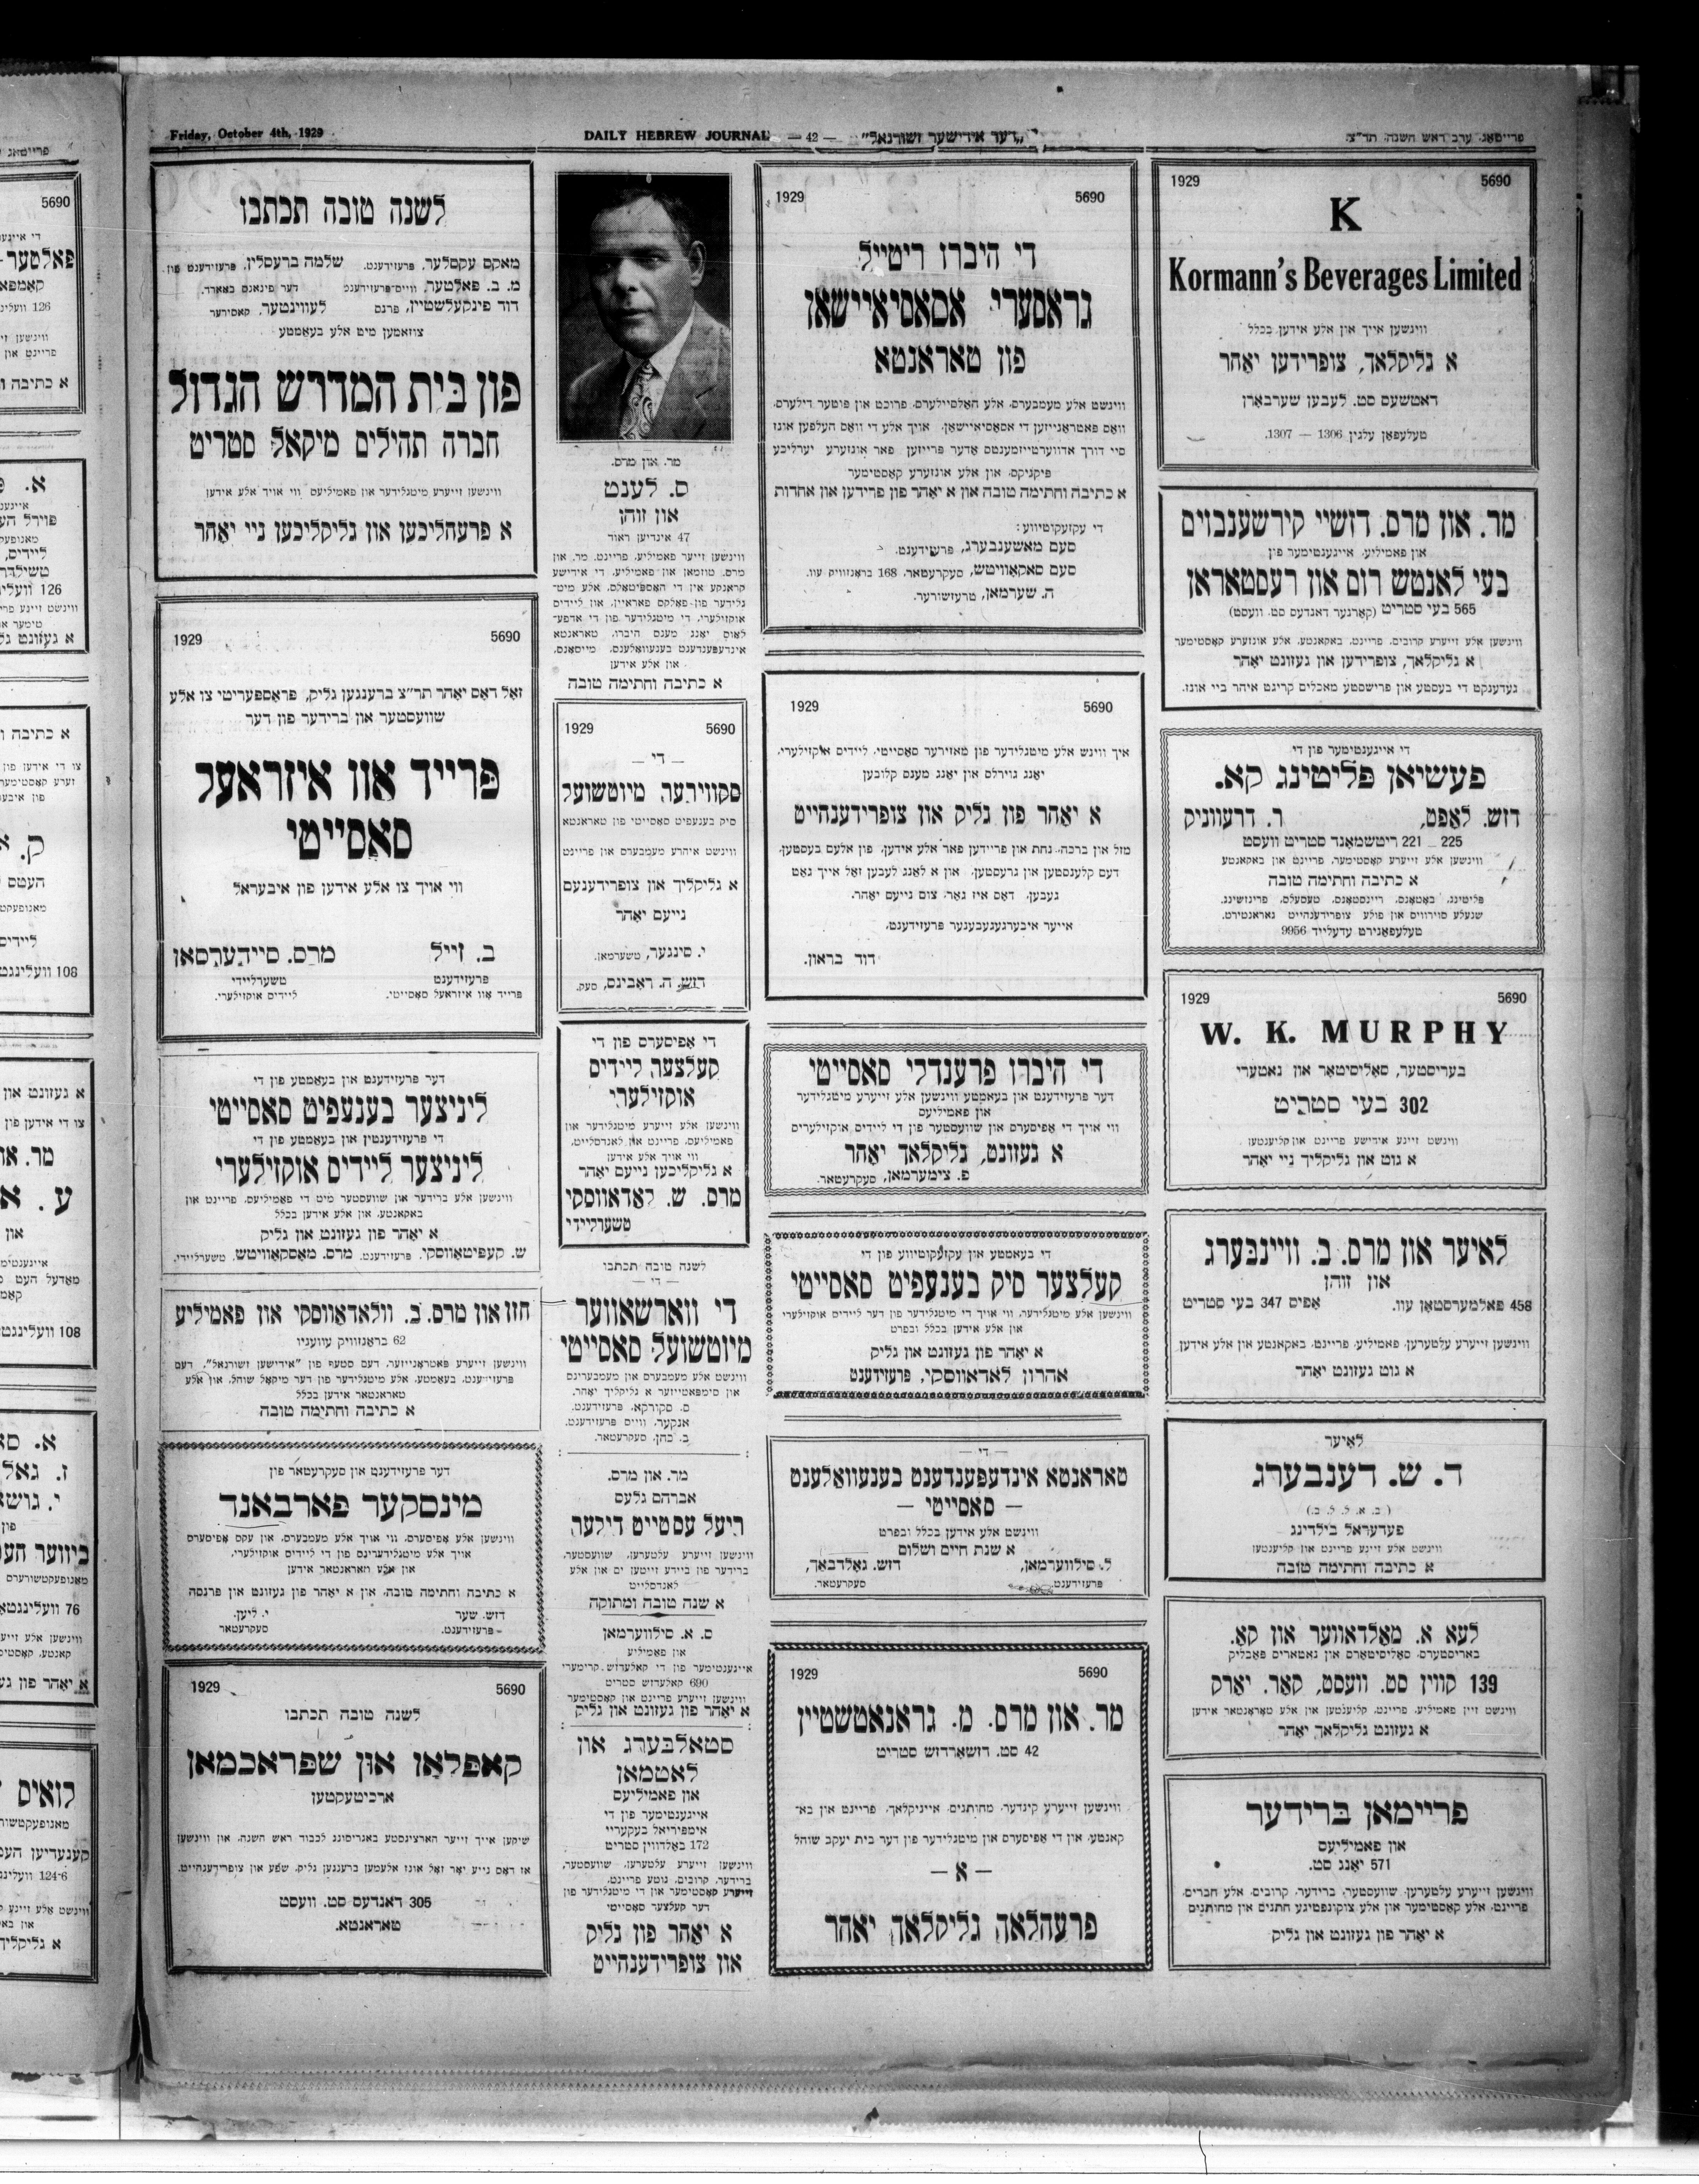 Friday, October 4th, 1929
DAILY HEBREW JOURNAL — 42 — "דער אידישער זשורנאל"
פרייטאג, ערב ראש השנה, תר״צ
1929 5690
K
Kormann's Beverages Limited
ווינשען אייך און אלע אידען בכלל
א גליקלאך, צופרידען יאהר
דאטשעס סט. לעבען שערבארן
טעלעפאן עלגין 1306 — 1307.
מר. און מרס. דזשיי קירשענבוים
און פאמיליע, אייגענטימער פון
בעי לאנטש רום און רעסטאראן
565 בעי סטריט (קארנער דאנדעס סט. וועסט)
ווינשען אלע זייערע קרובים, פריינט, באקאנטע, אלע אונזערע קאסטימער
א גליקלאך, צופרידען און געזונט יאהר
געדענקט די בעסטע און פרישסטע מאכלים קריגט איהר ביי אונז.
די אייגענטימער פון די
פעשיאן פליטינג קא.
דזש. לאפט, ר. דרעווניק
225 — 221 ריטשמאנד סטריט וועסט
ווינשען אלע זייערע קאסטימער, פריינט און באקאנטע
א כתיבה וחתימה טובה
פליטינג, באטאנס, ריינסטאנס, טעסעלס, פרינזשינג.
שנעלע סוירוויס און פולע צופרידענהייט גאראנטירט.
טעלעפאנירט עדעלייד 9956
1929 5690
W. K. MURPHY
בעריסטער, סאליסיטאר און נאטערי
302 בעי סטריט
ווינשט זיינע אידישע פריינט און קליענטען
א גוט און גליקליך ניי יאהר
לאיער און מרס. ב. וויינבערג
און זוהן
458 פאלמערסטאן עוו. אפיס 347 בעי סטריט
ווינשען זייערע עלטערען, פאמיליע, פריינט, באקאנטע און אלע אידען
א גוט געזונט יאהר
לאיער
ד. ש. דענבערג
(ב. א. ל. ל. ב.)
פעדעראל בילדינג
ווינשט אלע זיינע פריינט און קליענטען
א כתיבה וחתימה טובה
לעא א. מאלדאווער און קא.
באריסטערס, סאליסיטארס און נאטאריס פאבליק
139 קווין סט. וועסט, קאר. יארק
ווינשט זיין פאמיליע, פריינט, קליענטען און אלע טאראנטאר אידען
א געזונט גליקלאך יאהר
פריימאן ברידער
און פאמיליעס
571 יאנג סט.
ווינשען זייערע עלטערען, שוועסטער, ברידער, קרובים, אלע חברים,
פריינט, אלע קאסטימער און אלע צוקונפטיגע חתנים און מחותנים
א יאהר פון געזונט און גליק
1929 5690
די היברו ריטייל
גראסערי אסאסיאיישאן
פון טאראנטא
ווינשט אלע מעמבערס, אלע האלסיילערס, פרוכט און פוטער דילערס,
וואס פאטראנייזען די אסאסיאיישאן, אויך אלע די וואס העלפען אונז
סיי דורך אדווערטייזמענטס אדער פרייזען פאר אונזערע יערליכע
פיקניקס, און אלע אונזערע קאסטימער
א כתיבה וחתימה טובה און א יאהר פון פרידען און אחדות
די עקזעקוטיווע:
סעם מאשענבערג, פרעזידענט.
סעם סאקאוויטש, סעקרעטאר, 168 בראנזוויק עוו.
ה. שערמאן, טרעזשורער.
1929 5690
איך ווינש אלע מיטגלידער פון מאזירער סאסייטי, ליידיס אוקזילערי,
יאנג גוירלס און יאנג מענס קלובען
א יאהר פון גליק און צופרידענהייט
מזל און ברכה, נחת און פריידען פאר אלע אידען, פון אלעם בעסטען,
דעם קלענסטען און גרעסטען, און א לאנג לעבען זאל אייך גאט
געבען, דאס איז גאר, צום נייעם יאהר.
אייער איבערגעגעבענער פרעזידענט,
דוד בראון.
די היברו פרענדלי סאסייטי
דער פרעזידענט און בעאמטע ווינשען אלע זייערע מיטגלידער
און פאמיליעס
ווי אויך די אפיסערס און שוועסטער פון די ליידיס אוקזילעריס
א געזונט, גליקלאך יאהר
פ. צימערמאן, סעקרעטאר.
די בעאמטע און עקזעקוטיווע פון די
קעלצער סיק בענעפיט סאסייטי
ווינשען אלע מיטגלידער, ווי אויך די מיטגלידער פון דער ליידיס אוקזילערי
און אלע אידען בכלל ובפרט
א יאהר פון געזונט און גליק
אהרון לאדאווסקי, פרעזידענט
— די —
טאראנטא אינדעפענדענט בענעוואלענט
— סאסייטי —
ווינשט אלע אידען בכלל ובפרט
א שנת חיים ושלום
ל. סילווערמאן, דזש. גאלדבאך,
פרעזידענט. סעקרעטאר.
1929 5690
מר. און מרס. מ. גראנאטשטיין
42 סט. דזשארדזש סטריט
ווינשען זייערע קינדער, מחותנים, אייניקלאך, פריינט און בא־
קאנטע, און די אפיסערס און מיטגלידער פון דער בית יעקב שוהל
— א —
פרעהלאך גליקלאך יאהר
מר. און מרס.
ס. לענט
און זוהן
47 אינדיען ראוד
ווינשען זייער פאמיליע, פריינט, מר. און
מרס. טוזמאן און פאמיליע, די אידישע
קראנקע אין די האספיטאלס, אלע מיט־
גלידער פון פאלקס פאראיין, און ליידיס
אוקזילערי, די מיטגלידער פון די אדפע־
לאוס יאנג מענס היברו, טאראנטא
אינדעפענדענט בענעוואלענט, מייסאנס,
און אלע אידען
א כתיבה וחתימה טובה
1929 5690
— די —
סקווירער מיוטשועל
סיק בענעפיט סאסייטי פון טאראנטא
ווינשט איהרע מעמבערס און פריינט
א גליקליך און צופרידענעם
נייעם יאהר
י. סינגער, טשערמאן.
דזש. ה. ראבינס, סעק.
די אפיסערס פון די
קעלצער ליידיס
אוקזילערי
ווינשען אלע זייערע מיטגלידער און
פאמיליעס, פריינט און לאנדסלייט,
ווי אויך אלע אידען
א גליקליכען נייעם יאהר
מרס. ש. לאדאווסקי
טשערליידי
לשנה טובה תכתבו
— די —
די ווארשאווער
מיוטשועל סאסייטי
ווינשט אלע מעמבערס און מעמבערינס
און סימפאטייזער א גליקליך יאהר.
ס. סקורקא, פרעזידענט.
אנקער, ווייס פרעזידענט.
ב. כהן, סעקרעטאר.
מר. און מרס.
אברהם גלעס
ריעל עסטייט דילער
ווינשען זייערע עלטערען, שוועסטער,
ברידער פון ביידע זייטען ים און אלע
לאנדסלייט
א שנה טובה ומתוקה
ס. א. סילווערמאן
און פאמיליע
אייגענטימער פון די קאלעדזש קרימערי
690 קאלעדזש סטריט
ווינשען זייערע פריינט און קאסטימער
א יאהר פון געזונט און גליק
סטאלבערג און
לאטמאן
און פאמיליעס
אייגענטימער פון די
אימפיריאל בעקעריי
172 באלדווין סטריט
ווינשען זייערע עלטערען, שוועסטער,
ברידער, קרובים, גוטע פריינט,
זייערע קאסטימער און די מיטגלידער פון
דער קעלצער סאסייטי
א יאהר פון גליק
און צופרידענהייט
לשנה טובה תכתבו
מאקס עקסלער, פרעזידענט. שלמה ברעסלין, פרעזידענט פון
מ. ב. פאלטער, ווייס־פרעזידענט דער פינאנס באארד.
דוד פינקעלשטיין, פרנס לעווינטער, קאסירער
צוזאמען מיט אלע בעאמטע
פון בית המדרש הגדול
חברה תהילים מיקאל סטריט
ווינשען זייערע מיטגלידער און פאמיליעס ווי אויך אלע אידען
א פרעהליכען און גליקליכען ניי יאהר
1929 5690
זאל דאס יאהר תר״צ ברענגען גליק, פראספעריטי צו אלע
שוועסטער און ברידער פון דער
פרייד אוו איזראעל
סאסייטי
ווי אויך צו אלע אידען פון איבעראל
ב. זייל מרס. סיידערסאן
פרעזידענט טשערליידי
פרייד אוו איזראעל סאסייטי. ליידיס אוקזילערי.
דער פרעזידענט און בעאמטע פון די
ליניצער בענעפיט סאסייטי
די פרעזידענטין און בעאמטע פון די
ליניצער ליידיס אוקזילערי
ווינשען אלע ברידער און שוועסטער מיט די פאמיליעס, פריינט און
באקאנטע, און אלע אידען בכלל
א יאהר פון געזונט און גליק
ש. קעפיטאווסקי, פרעזידענט. מרס. מאסקאוויטש, טשערליידי.
חזן און מרס. ב. וולאדאווסקי און פאמיליע
62 בראנזוויק עוועניו
ווינשען זייערע פאטראנייזער, דעם סטעף פון "אידישען זשורנאל", דעם
פרעזידענט, בעאמטע, אלע מיטגלידער פון דער מיקאל שוהל, און אלע
טאראנטאר אידען בכלל
א כתיבה וחתימה טובה
דער פרעזידענט און סעקרעטאר פון
מינסקער פארבאנד
ווינשען אלע אפיסערס, ווי אויך אלע מעמבערס, און עקס אפיסערס
אויך אלע מיטגלידערינס פון די ליידיס אוקזילערי,
און אלע טאראנטאר אידען
א כתיבה וחתימה טובה, און א יאהר פון געזונט און פרנסה
דזש. שער י. ליען,
פרעזידענט. סעקרעטאר
1929 5690
לשנה טובה תכתבו
קאפלאן און שפראכמאן
ארכיטעקטען
שיקען אייך זייער הארציגסטע באגריסונג לכבוד ראש השנה, און ווינשען
אז דאס נייע יאר זאל אונז אלעמען ברענגען גליק, שפע און צופרידענהייט.
305 דאנדעס סט. וועסט
טאראנטא.